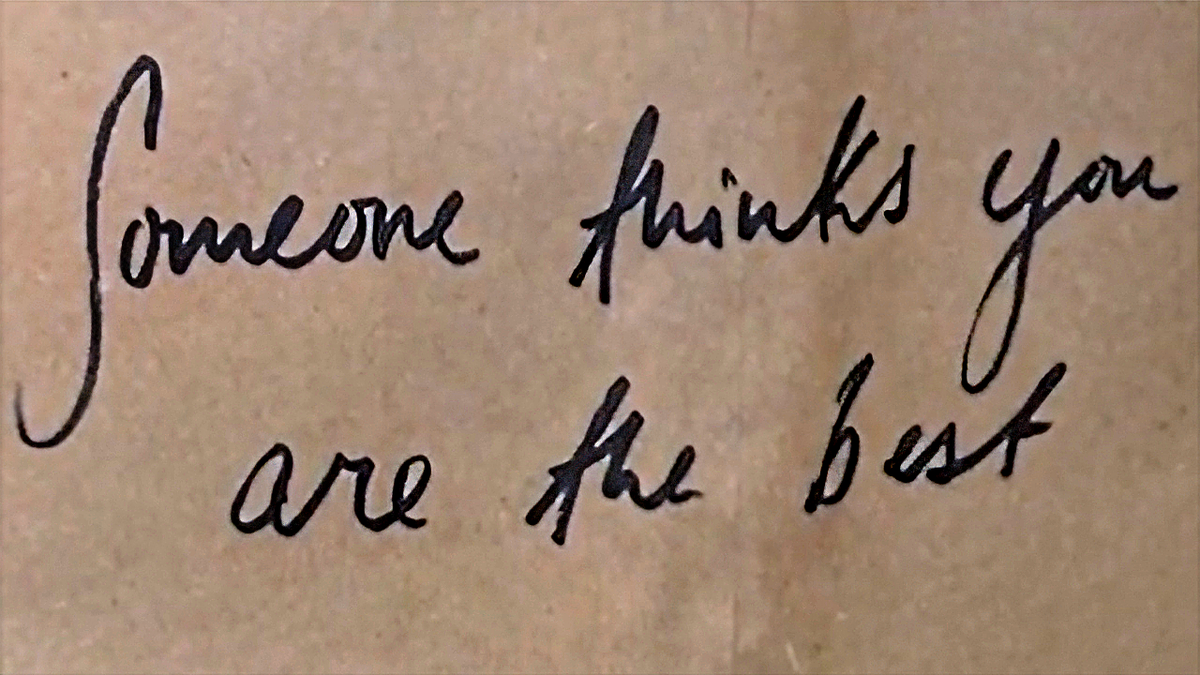 Someone thinks you
are the best